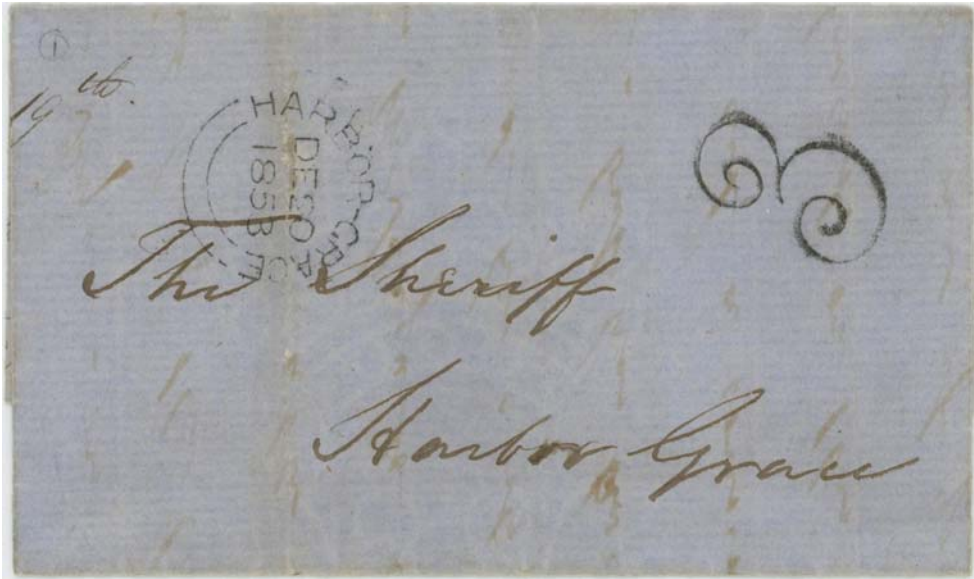 ①
19th.
HARBOR-GRACE
DE20
1858
3
The Sheriff
Harbor Grace